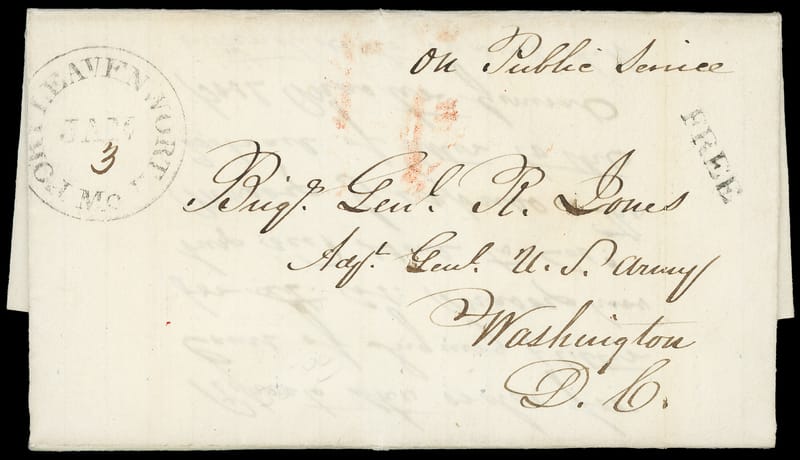 on Public Service
FORT LEAVENWORTH Mo.
JAN
3
FREE
Brigr. Genl. R. Jones
Adjt. Genl. U. S. Army
Washington
D. C.